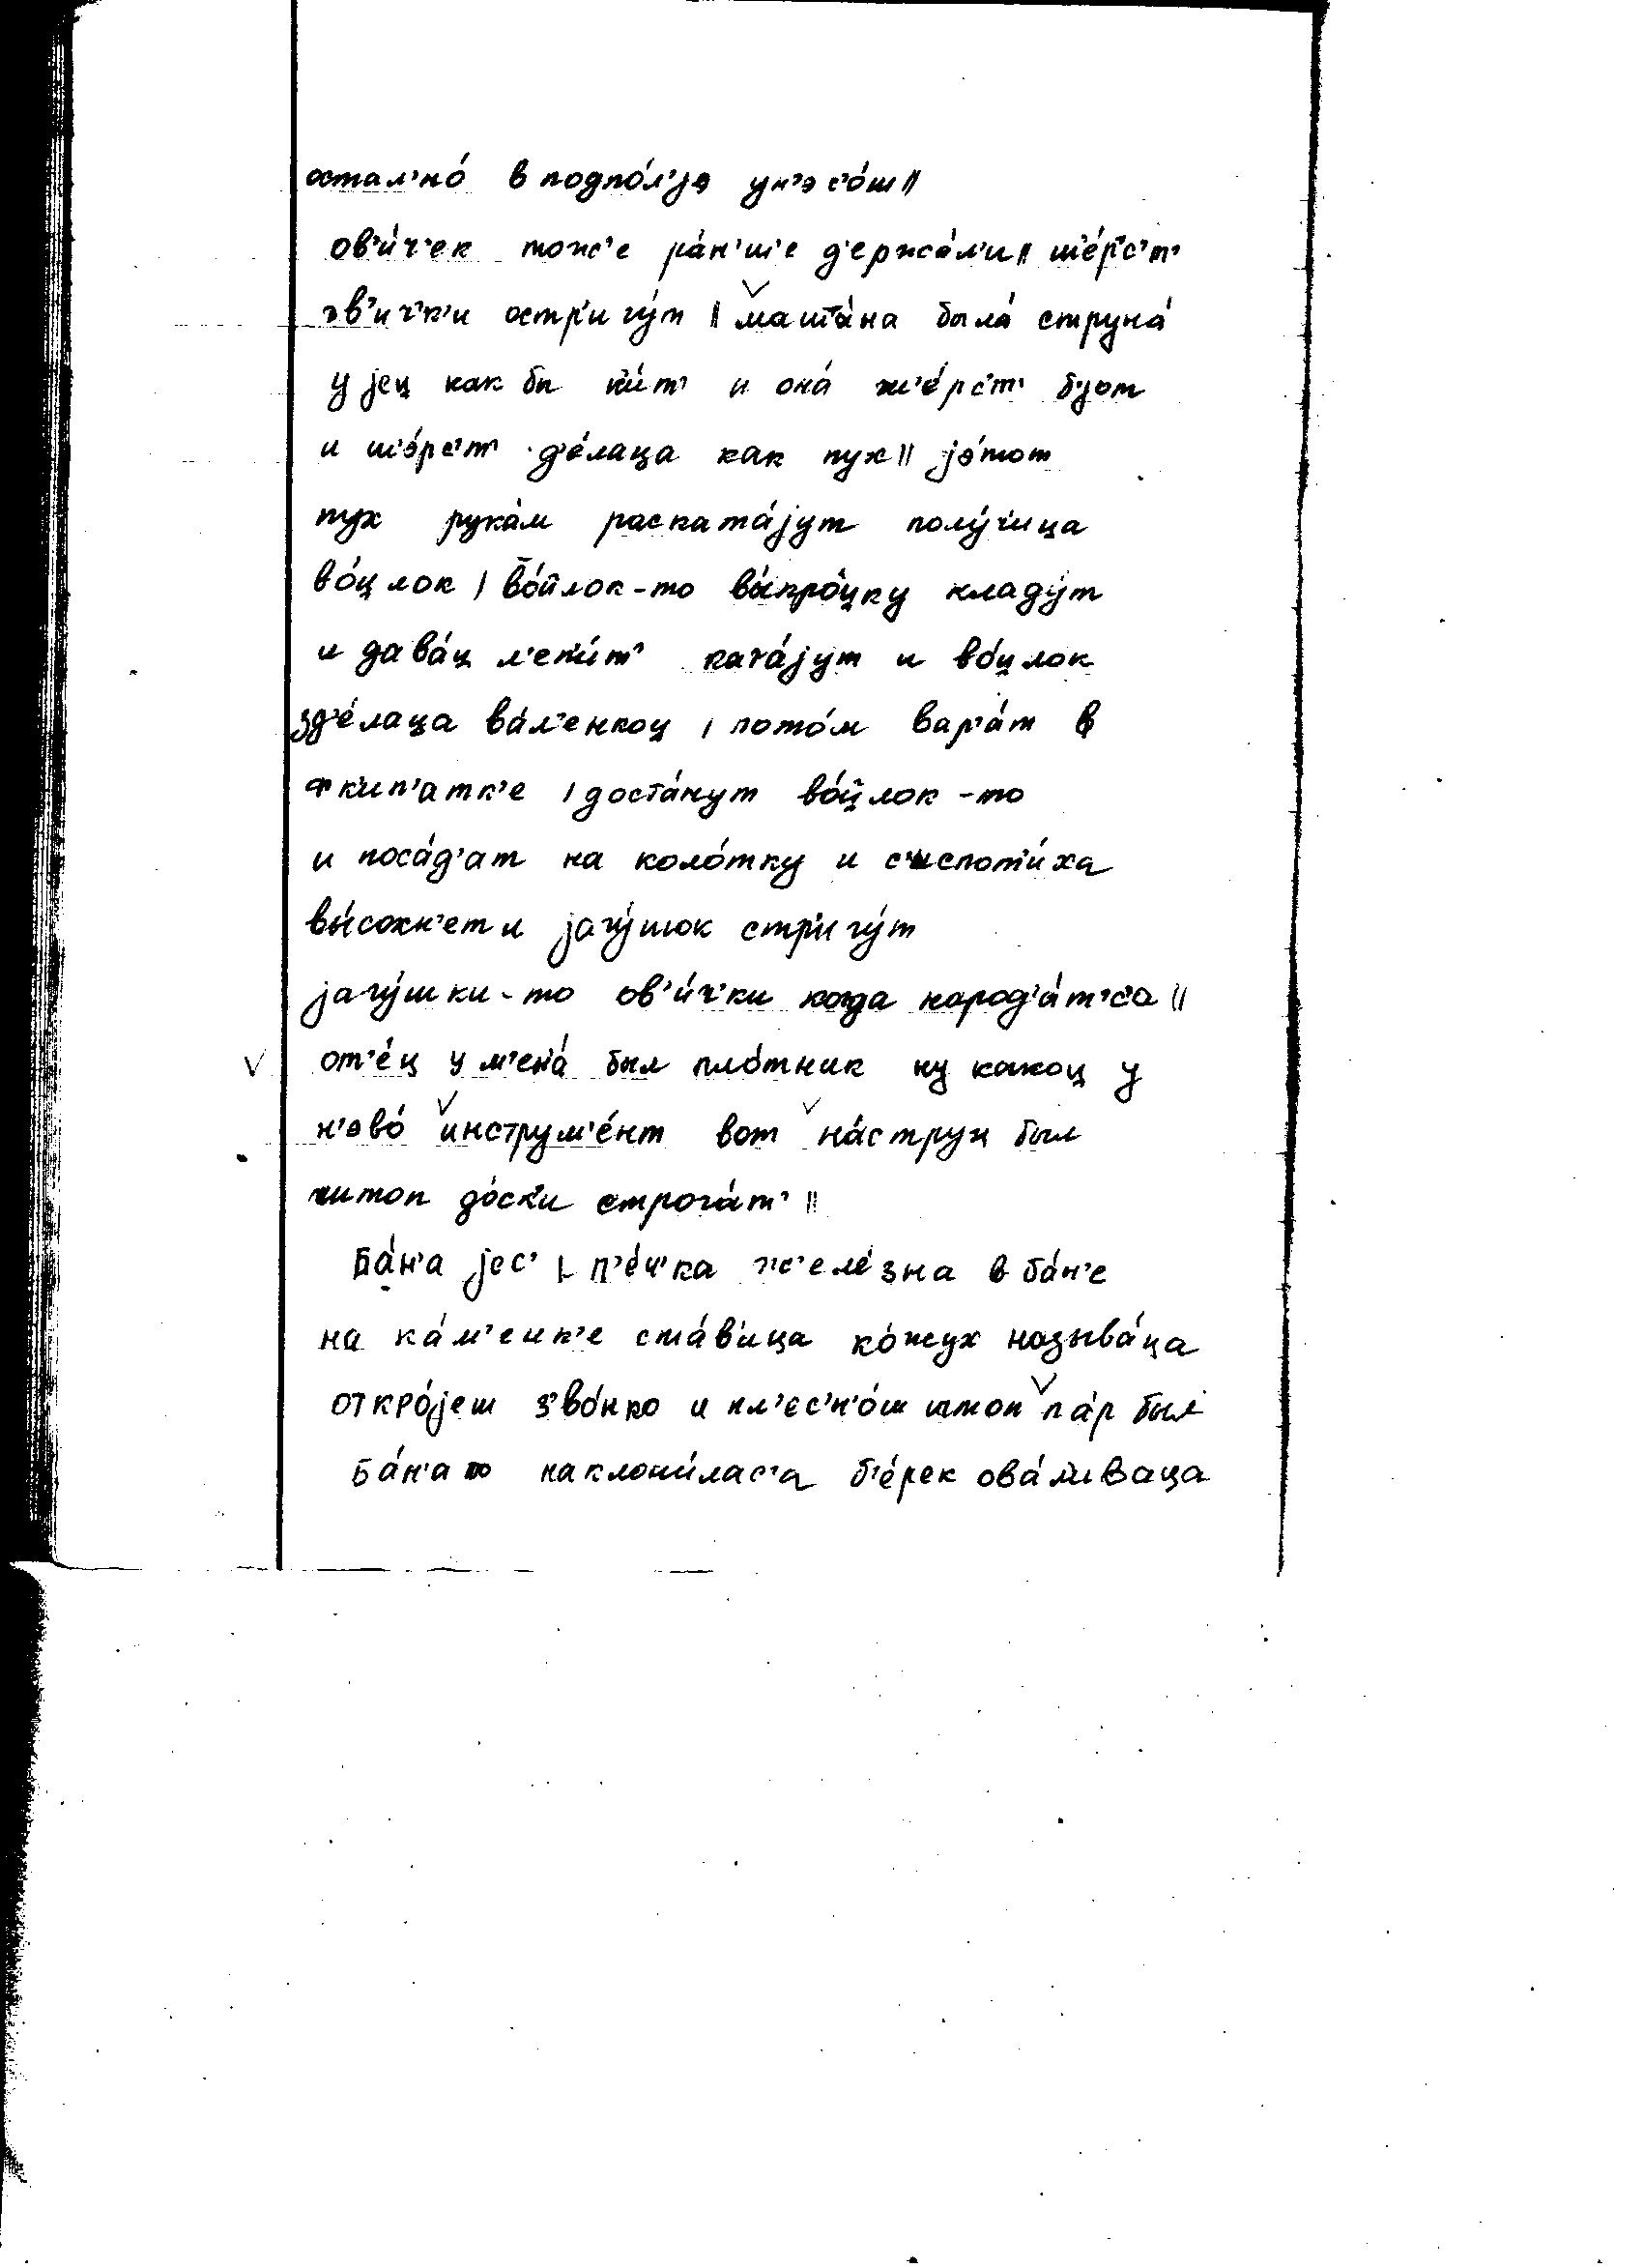 остал'но́ в подпо́л'јэ ун'эс'о́ш ||
ов'и́ч'ек тож'е ра́н'ш'е д'ержа́л'и || ш'е́рс'т'
ов'и́ч'к'и остр'игу́т || машта́на была́ струна́
у јеи̯ как бы н'и́т' и она́ ш'е́рс'т' бјот
и ш'э́рс'т' д'е́лаца как пух || јэ́тот
пух рука́м раската́јут полу́ч'ица
во́и̯лок | во́йлок-то вы́кро́и̯ку кладу́т
и дава́и̯ л'еп'и́т' ката́јут и во́и̯лок
зд'е́лаца ва́л'енкои̯ | пото́м вар'а́т в
ф кип'атк'е | доста́нут во́и̯лок-то
и поса́д'ат на коло́тку и спот'и́ха
вы́сохн'ет и јагу́шок стр'игу́т
јагу́шки-то ов'и́ч'ки когда народ'а́т'с'а ||
от'е́ц у м'ен'а́ был пло́тник ну какои̯ у
н'эво́ инструм'е́нт вот на́струи̯ был
штоп до́ск'и строга́т' ||
Ба́н'а јес' | п'е́ч'ка ж'еле́зна в ба́н'е
на ка́м'енк'е ста́в'ица ко́жух называ́ца
откро́јеш з'во́нко и пл'ес'н'о́ш штоп па́р был
Ба́н'а то наклони́лас'а б'е́рек ова́л'иваца